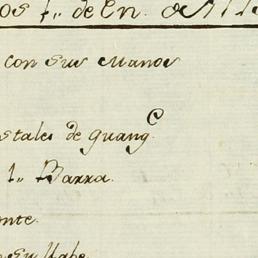 os 1.. de En.
con sus Manos
stales de guang.c
1.. Barra.
nte.